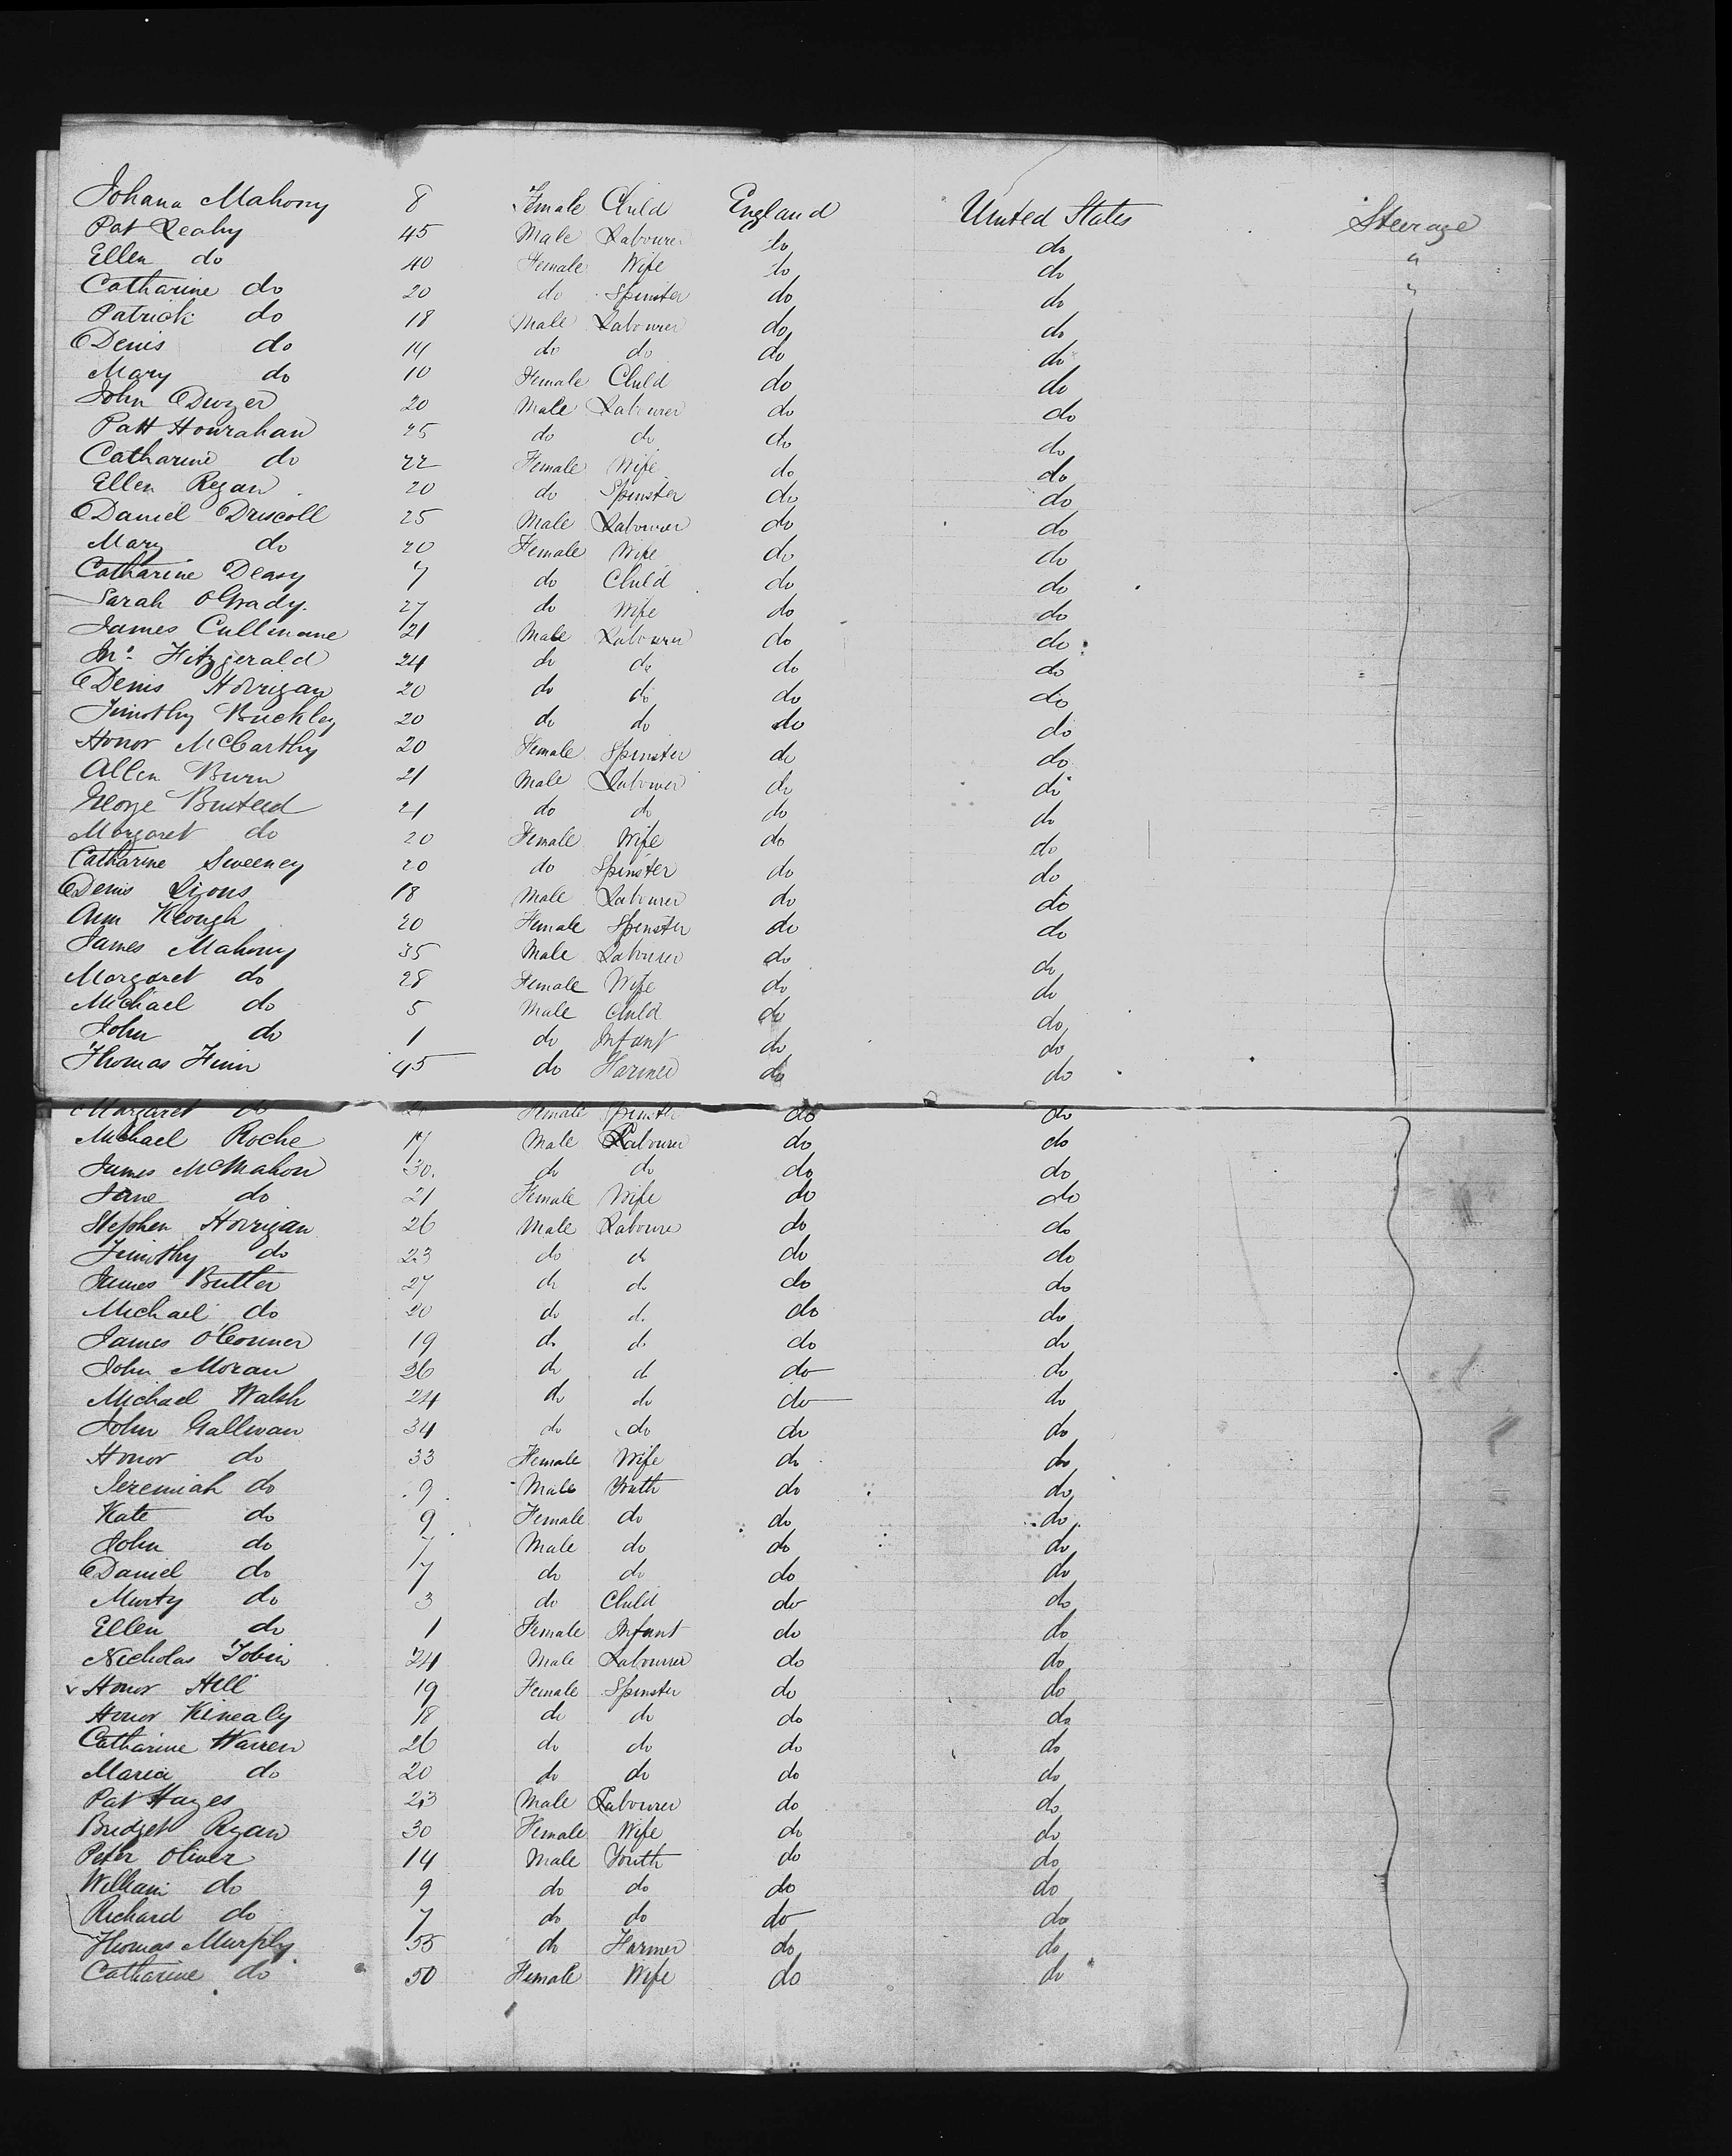 Johana Mahony 8 Female Child England United States Steerage
Pat Leahy 45 Male Labourer do do "
Ellen do 40 Female Wife do do "
Catharine do 20 do Spinster do do
Patrick do 18 Male Labourer do do
Denis do 14 do do do do
Mary do 10 Female Child do do
John Dwyer 20 Male Labourer do do
Patt Hourahan 25 do do do do
Catharine do 22 Female Wife do do
Ellen Regan 20 do Spinster do do
Daniel Driscoll 25 Male Labourer do do
Mary do 20 Female Wife do do
Catharine Deasy 7 do Child do do
Sarah OGrady 27 do Wife do do
James Cullinane 21 Male Labourer do do
Jno. Fitzgerald 24 do do do do
Denis Horrigan 20 do do do do
Timothy Buckley 20 do do do do
Honor McCarthy 20 Female Spinster do do
Allen Burn 21 Male Labourer do do
George Busteed 21 do do do do
Margaret do 20 Female Wife do do
Catharine Sweeney 20 do Spinster do do
Denis Lyons 18 Male Labourer do do
Ann Keough 20 Female Spinster do do
James Mahony 35 Male Labourer do do
Margaret do 28 Female Wife do do
Michael do 5 Male Child do do
John do 1 do Infant do do
Thomas Finn 45 do Farmer do do
Margaret do Female Spinster do do
Michael Roche 17 Male Labourer do do
James McMahon 30 do do do do
Jane do 21 Female Wife do do
Stephen Horrigan 26 Male Labourer do do
Timothy do 23 do do do do
James Butler 27 do do do do
Michael do 20 do do do do
James O'Conner 19 do do do do
John Moran 26 do do do do
Michael Walsh 24 do do do do
John Gallivan 34 do do do do
Honor do 33 Female Wife do do
Jeremiah do 9 Male Youth do do
Kate do 9 Female do do do
John do 7 Male do do do
Daniel do 7 do do do do
Murty do 3 do Child do do
Ellen do 1 Female Infant do do
Nicholas Tobin 24 Male Labourer do do
v Honor Hill 19 Female Spinster do do
Honor Kinealy 18 do do do do
Catharine Warren 26 do do do do
Maria do 20 do do do do
Pat Hayes 23 Male Labourer do do
Bridget Ryan 30 Female Wife do do
Peter Oliver 14 Male Youth do do
William do 9 do do do do
Richard do 7 do do do do
Thomas Murphy 55 do Farmer do do
Catharine do 50 Female Wife do do